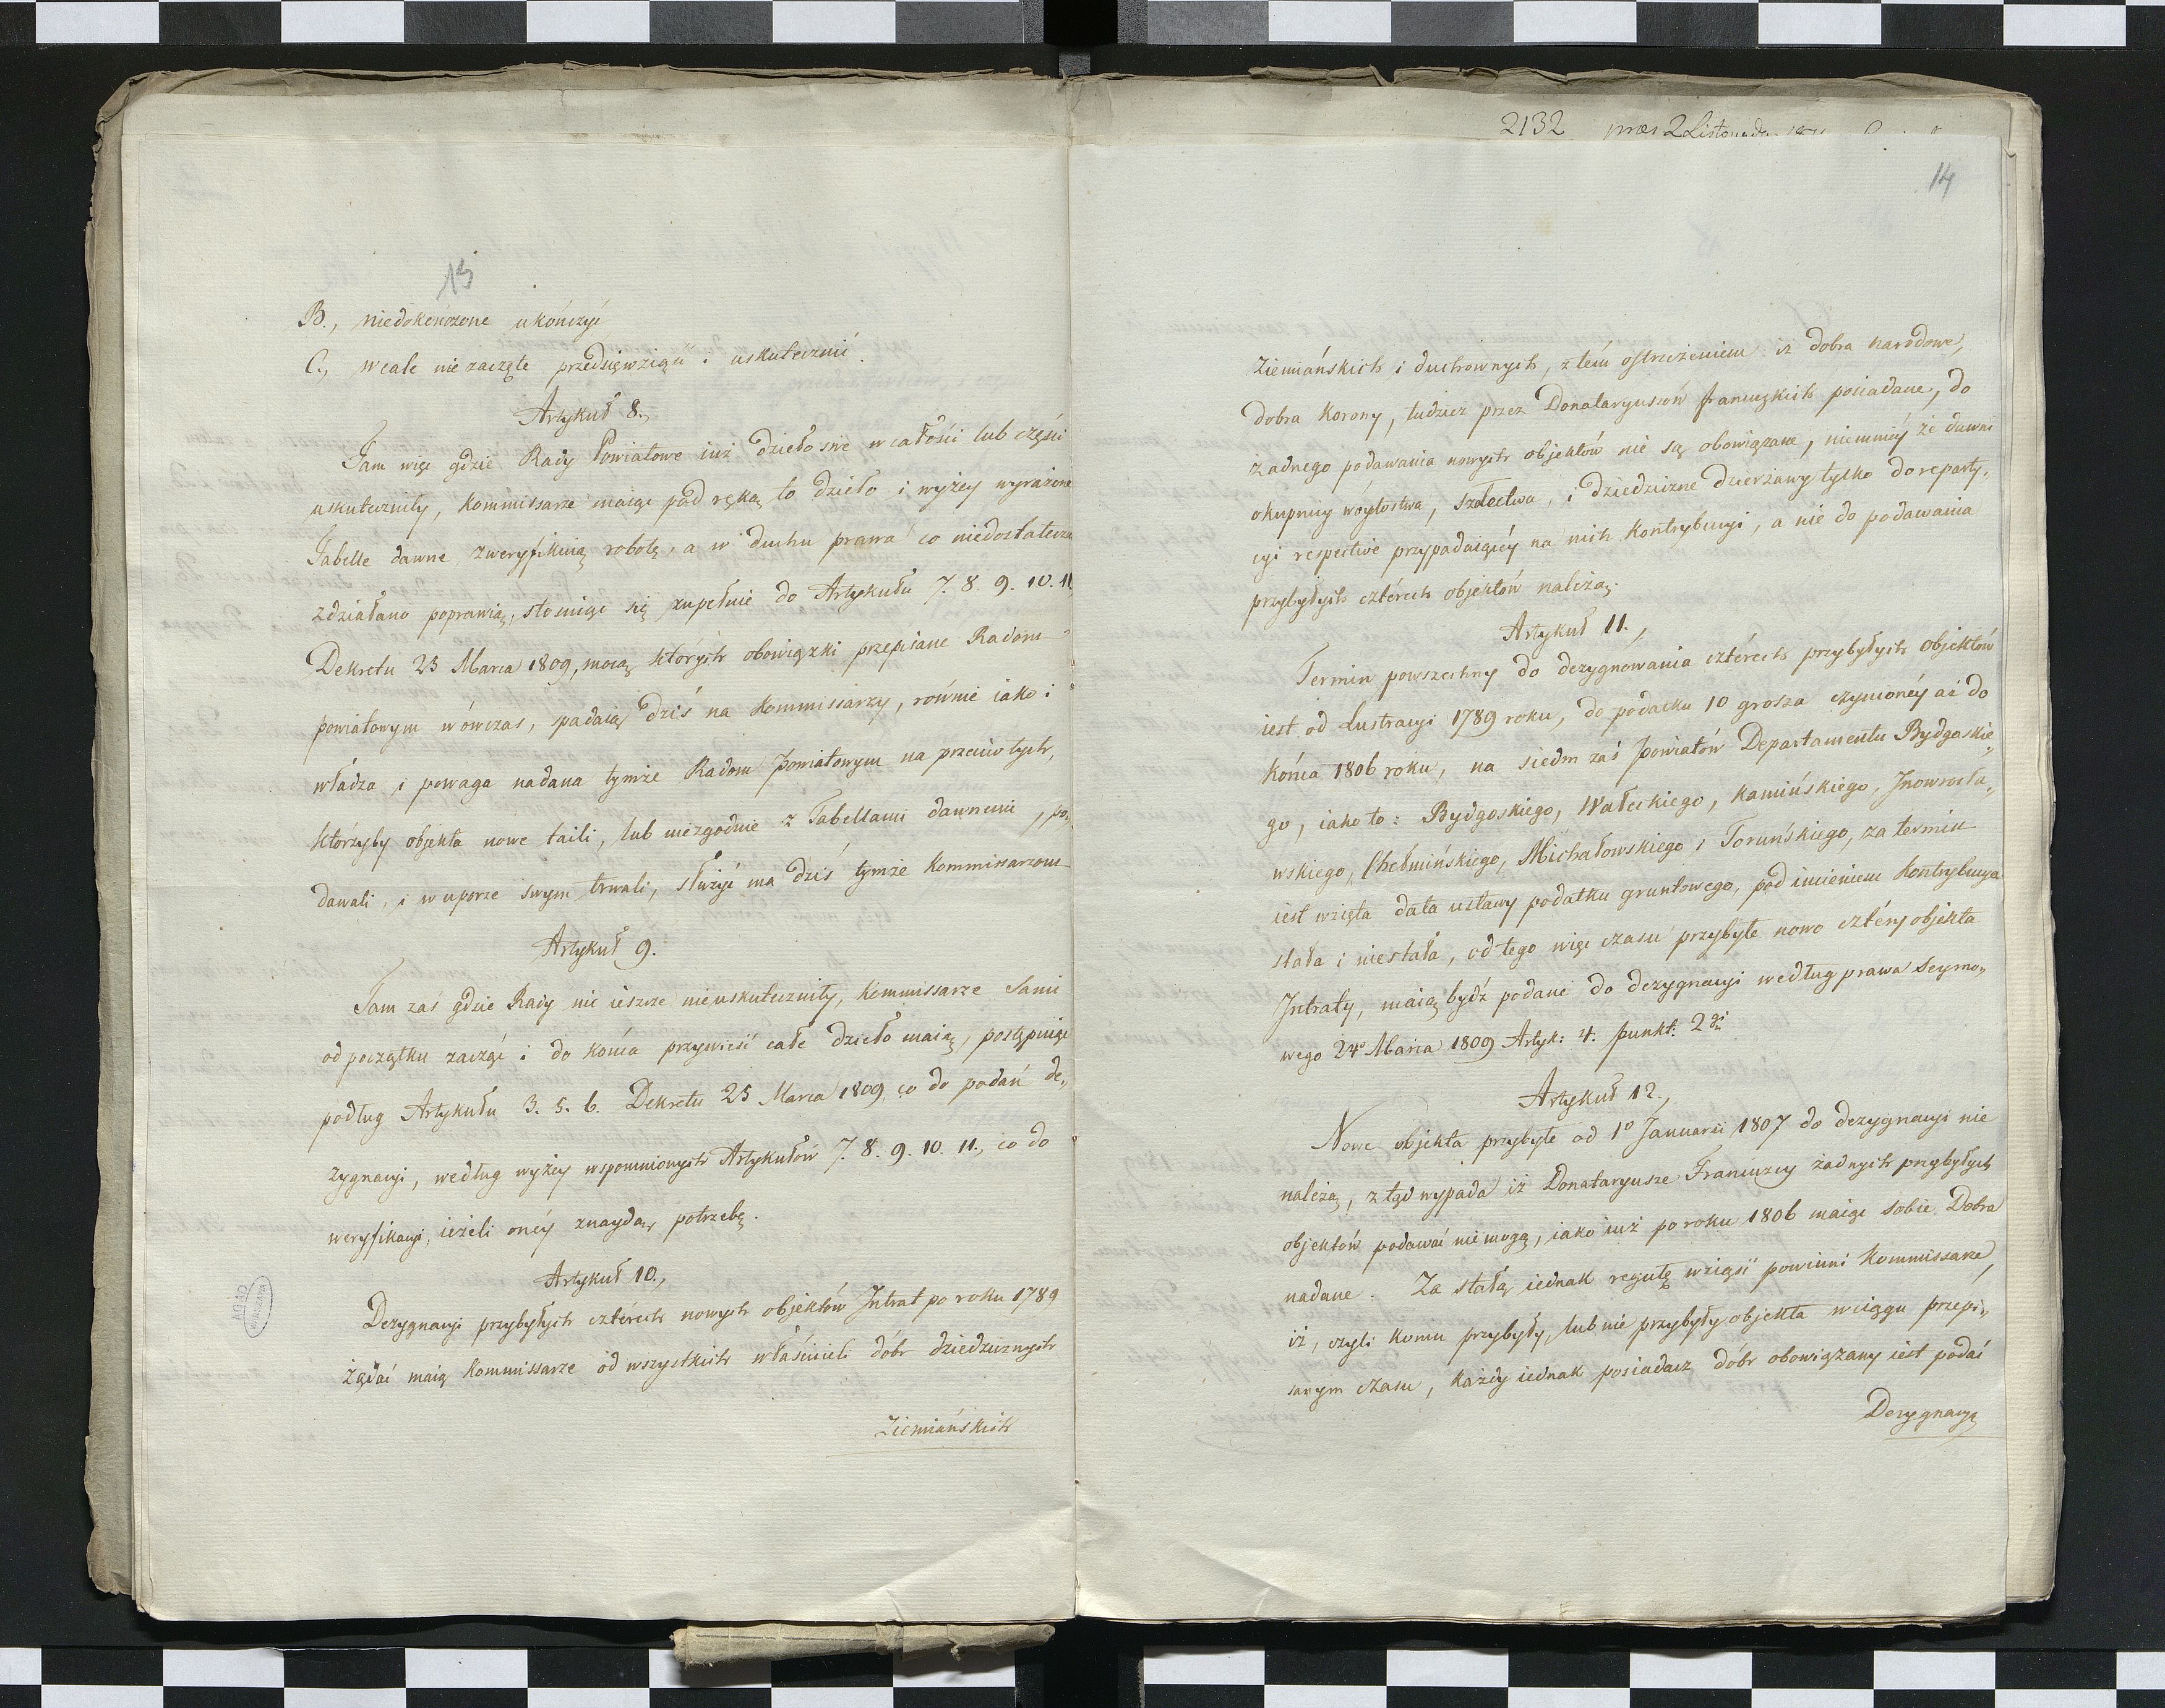 13
B., niedokończone ukończyć
C., wcale nie zaczęte przedsięwziąść i uskutecznić.
Artykuł 8.,
Tam więc gdzie Rady Powiatowe iuż dzieło swe w całości lub części
uskuteczniły, Kommissarze maiąc pod ręką to dzieło i wyżey wyrażone
Tabelle dawne zweryfikuią robotę, a w duchu prawa co niedostateczn
zdziałano poprawią, stosuiąc się zupełnie do Artykułu 7. 8. 9. 10. 11.
Dekretu 25 Marca 1809, mocą których obowiązki przepisane Radom
powiatowym wówczas, spadaią dziś na Kommissarzy, równie iako i
władza i powaga nadana tymże Radom powiatowym na przeciw tych,
którzyby objekta nowe taili, lub niezgodnie z Tabellami dawnemi, po„
dawali, i w uporze swym trwali, służyć ma dziś tymże Kommissarzom
Artykuł 9.
Tam zaś gdzie Rady nic ieszcze nieuskuteczniły, Kommissarze sami
od początku zacząć i do końca przywieść całe dzieło maią, postępuiąc
podług Artykułu 3. 5. 6. Dekretu 25 Marca 1809, co do podań de„
zygnacyi, według wyżey wspomnionych Artykułów 7. 8. 9. 10. 11., co do
weryfikacyi, ieżeli onéy znaydą potrzebę.
Artykuł 10.,
Dezygnacyi przybyłych cztérech nowych objektów Intrat po roku 1789
żądać maią Kommissarze od wszystkich właścicieli dóbr dziedzicznych
Ziemiańskich
AGAD
WARSZAWA
2132 praes 2 Listopada
14
Ziemiańskich i duchownych, z tém ostrzeżeniem iż dobra narodowe,
dobra Korony, tudzież przez Donataryuszów francuzkich posiadane, do
żadnego podawania nowych objektów nie są obowiązane, niemniéy że dawni
okupnicy wóytostwa, szołectwa, i dziedziczne dzierżawy tylko do reparty„
cyi respective przypadaiącéy na nich Kontrybucyi, a nie do podawania
przybyłych cztérech objektów należą.
Artykuł 11.,
Termin powszechny do dezygnowania cztérech przybyłych objektów
iest od Lustracyi 1789 roku, do podatku 10 grosza czynionéy aż do
końca 1806 roku, na siedm zaś powiatów Departamentu Bydgoskie„
go, iako to: Bydgoskiego, Wałeckiego, Kamińskiego, Inowrocła„
wskiego, Chełmińskiego, Michałowskiego i Toruńskiego, za termin
iest wzięta data ustawy podatku gruntowego, pod imieniem Kontrybucya
stała i niestała, od tego więc czasu przybyłe nowo cztéry objekta
Intraty, maią bydź podane do dezygnacyi według prawa Seymo„
wego 24º Marca 1809 Artyk: 4. punkt: 2gi
Artykuł 12.,
Nowe objekta przybyłe od 1º Januarii 1807 do dezygnacyi nie
należą, ztąd wypada iż Donataryusze Francuzcy żadnych przybyłych
objektów podawać nie mogą, iako iuż po roku 1806 maiąc sobie Dobra
nadane. Za stałą iednak regułę wziąść powinni Kommissarze,
iż, czyli komu przybyły, lub nie przybyły objekta w ciągu przepi„
sanym czasu, każdy iednak posiadacz dóbr obowiązany iest podać
Dezygnacyą